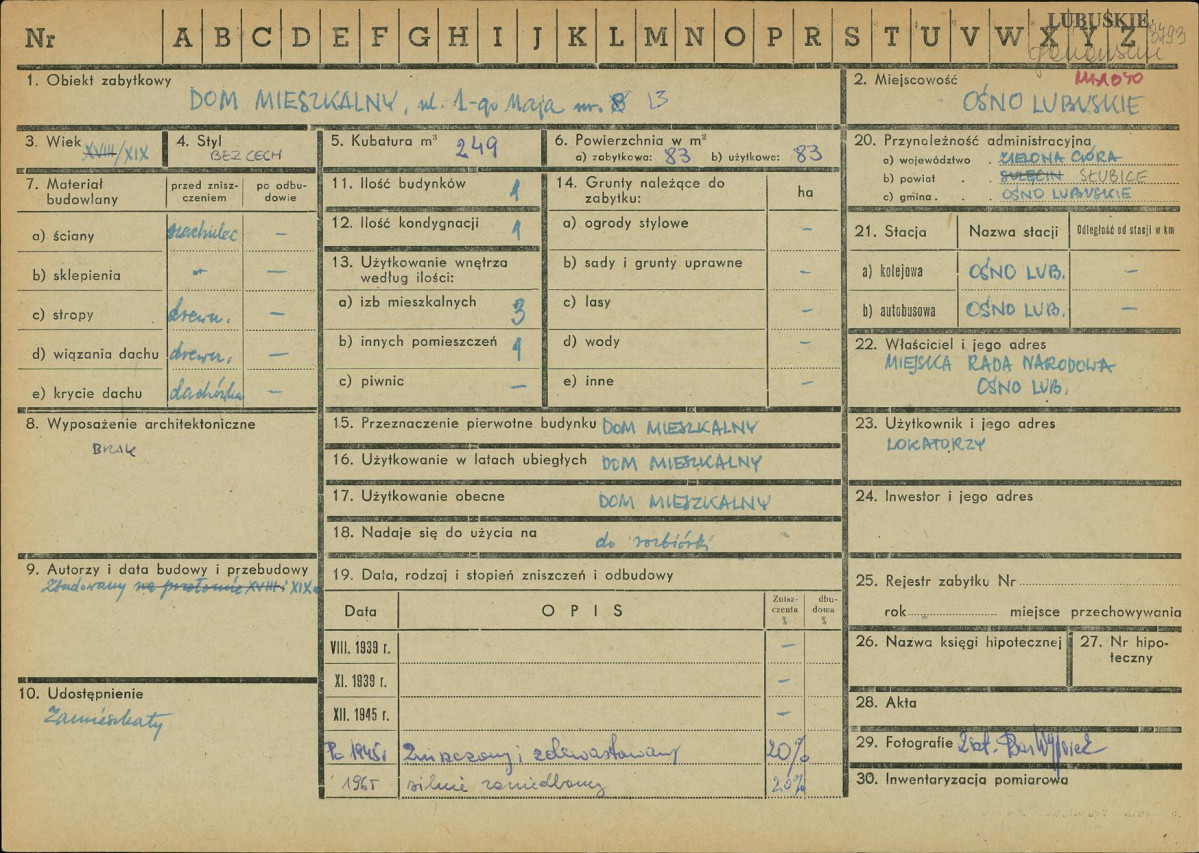 Nr A B C D E F G H I J K L M N O P R S T U V W X Y Z
LUBUSKIE
3793
1. Obiekt zabytkowy
DOM MIESZKALNY, ul. 1-go Maja nr. 8 13
2. Miejscowość MIASTO
OŚNO LUBUSKIE
3. Wiek XVIII/XIX
4. Styl
BEZ CECH
5. Kubatura m³ 249
6. Powierzchnia w m²
a) zabytkowa: 83 b) użytkowa: 83
7. Materiał budowlany
przed zniszczeniem
po odbudowie
a) ściany szachulec —
b) sklepienia - —
c) stropy drewn. —
d) wiązania dachu drewn. —
e) krycie dachu dachówka —
8. Wyposażenie architektoniczne
BRAK
9. Autorzy i data budowy i przebudowy
Zbudowany na przełomie XVIII i XIX
10. Udostępnienie
Zamieszkały
11. Ilość budynków 1
12. Ilość kondygnacji 1
13. Użytkowanie wnętrza
według ilości:
a) izb mieszkalnych 3
b) innych pomieszczeń 1
c) piwnic —
14. Grunty należące do
zabytku:
ha
a) ogrody stylowe —
b) sady i grunty uprawne —
c) lasy —
d) wody —
e) inne —
15. Przeznaczenie pierwotne budynku DOM MIESZKALNY
16. Użytkowanie w latach ubiegłych DOM MIESZKALNY
17. Użytkowanie obecne DOM MIESZKALNY
18. Nadaje się do użycia na do rozbiórki
19. Data, rodzaj i stopień zniszczeń i odbudowy
Data OPIS Zniszczenia % dbudowa %
VIII. 1939 r. —
XI. 1939 r. —
XII. 1945 r. —
Po 1945 r Zniszczony i zdewastowany 20%
1965 silnie zaniedbany 25%
20. Przynoleżność administracyjna
a) województwo . ZIELONA GÓRA
b) powiat . . SULĘCIN SŁUBICE
c) gmina . . OŚNO LUBUSKIE
21. Stacja Nazwa stacji Odległość od stacji w km
a) kolejowa OŚNO LUB. —
b) autobusowa OŚNO LUB. —
22. Właściciel i jego adres
MIEJSKA RADA NARODOWA
OŚNO LUB.
23. Użytkownik i jego adres
LOKATORZY
24. Inwestor i jego adres
25. Rejestr zabytku Nr
rok miejsce przechowywania
26. Nazwa księgi hipotecznej
27. Nr hipoteczny
28. Akta
29. Fotografie
30. Inwentaryzacja pomiarowa